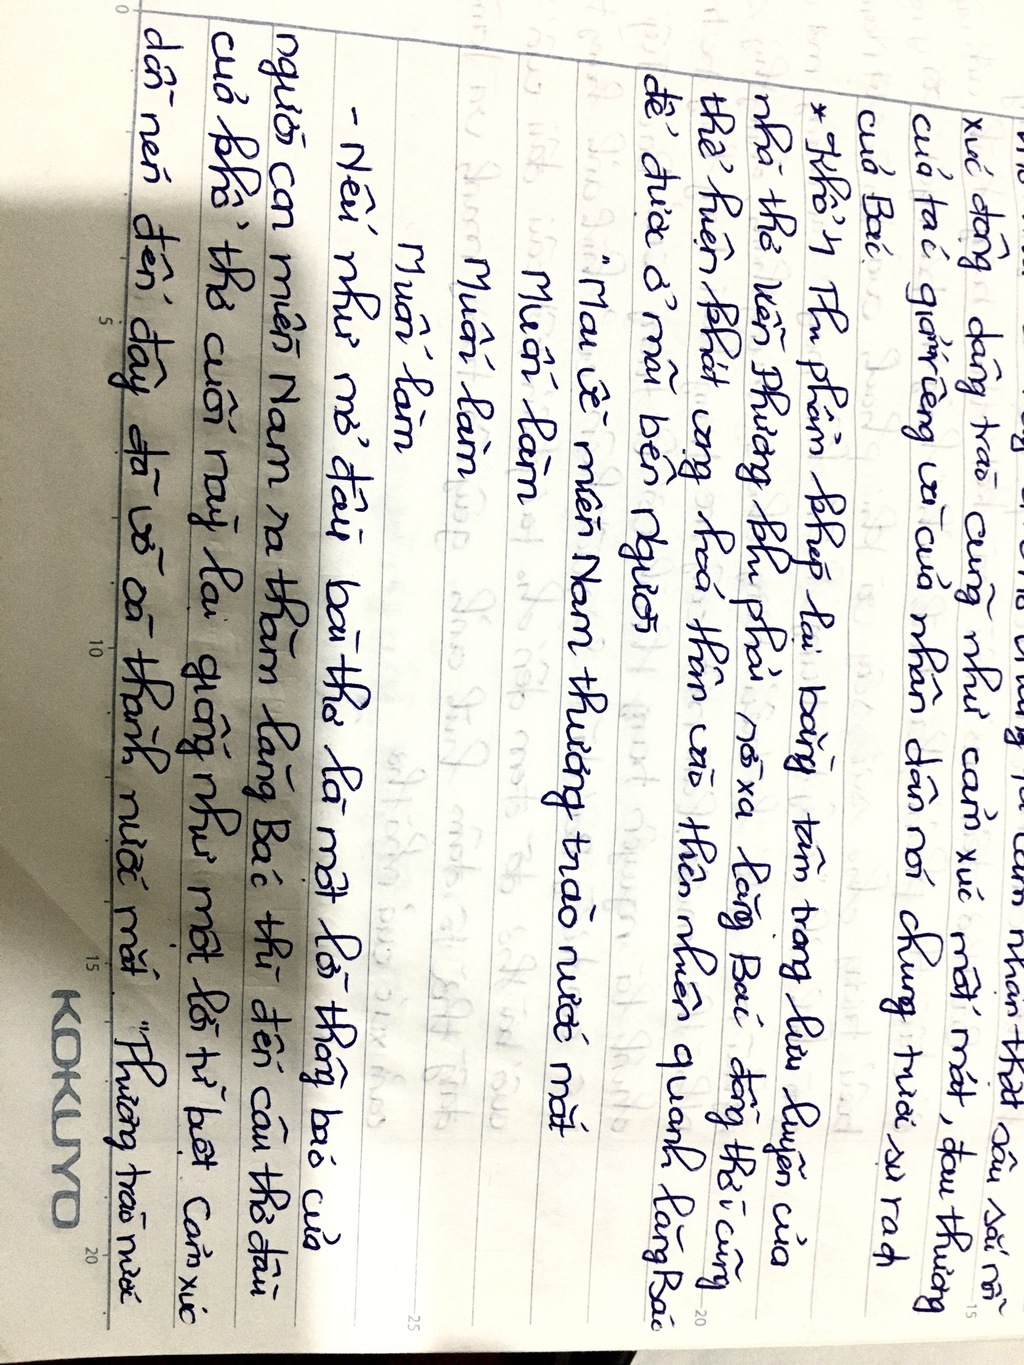 xúc động dâng trào cũng như cảm xúc mất mát, đau thương
của tác giả riêng và của nhân dân nói chung trước sự ra đi
của Bác.
* Khổ 4 Thi phẩm khép lại bằng tâm trạng lưu luyến của
nhà thơ Viễn Phương khi phải rời xa lăng Bác đồng thời cũng
thể hiện khát vọng hoá thân vào thiên nhiên quanh lăng Bác
để được ở mãi bên Người
"Mai về miền Nam thương trào nước mắt
Muốn làm
Muốn làm
Muốn làm
- Nếu như mở đầu bài thơ là một lời thông báo của
người con miền Nam ra thăm lăng Bác thì đến câu thơ đầu
của khổ thơ cuối này lại giống như một lời từ biệt. Cảm xúc
dồn nén đến đây đã vỡ oà thành nước mắt "Thương trào nước
0
5
10
15
20
15
20
25
KOKUYO